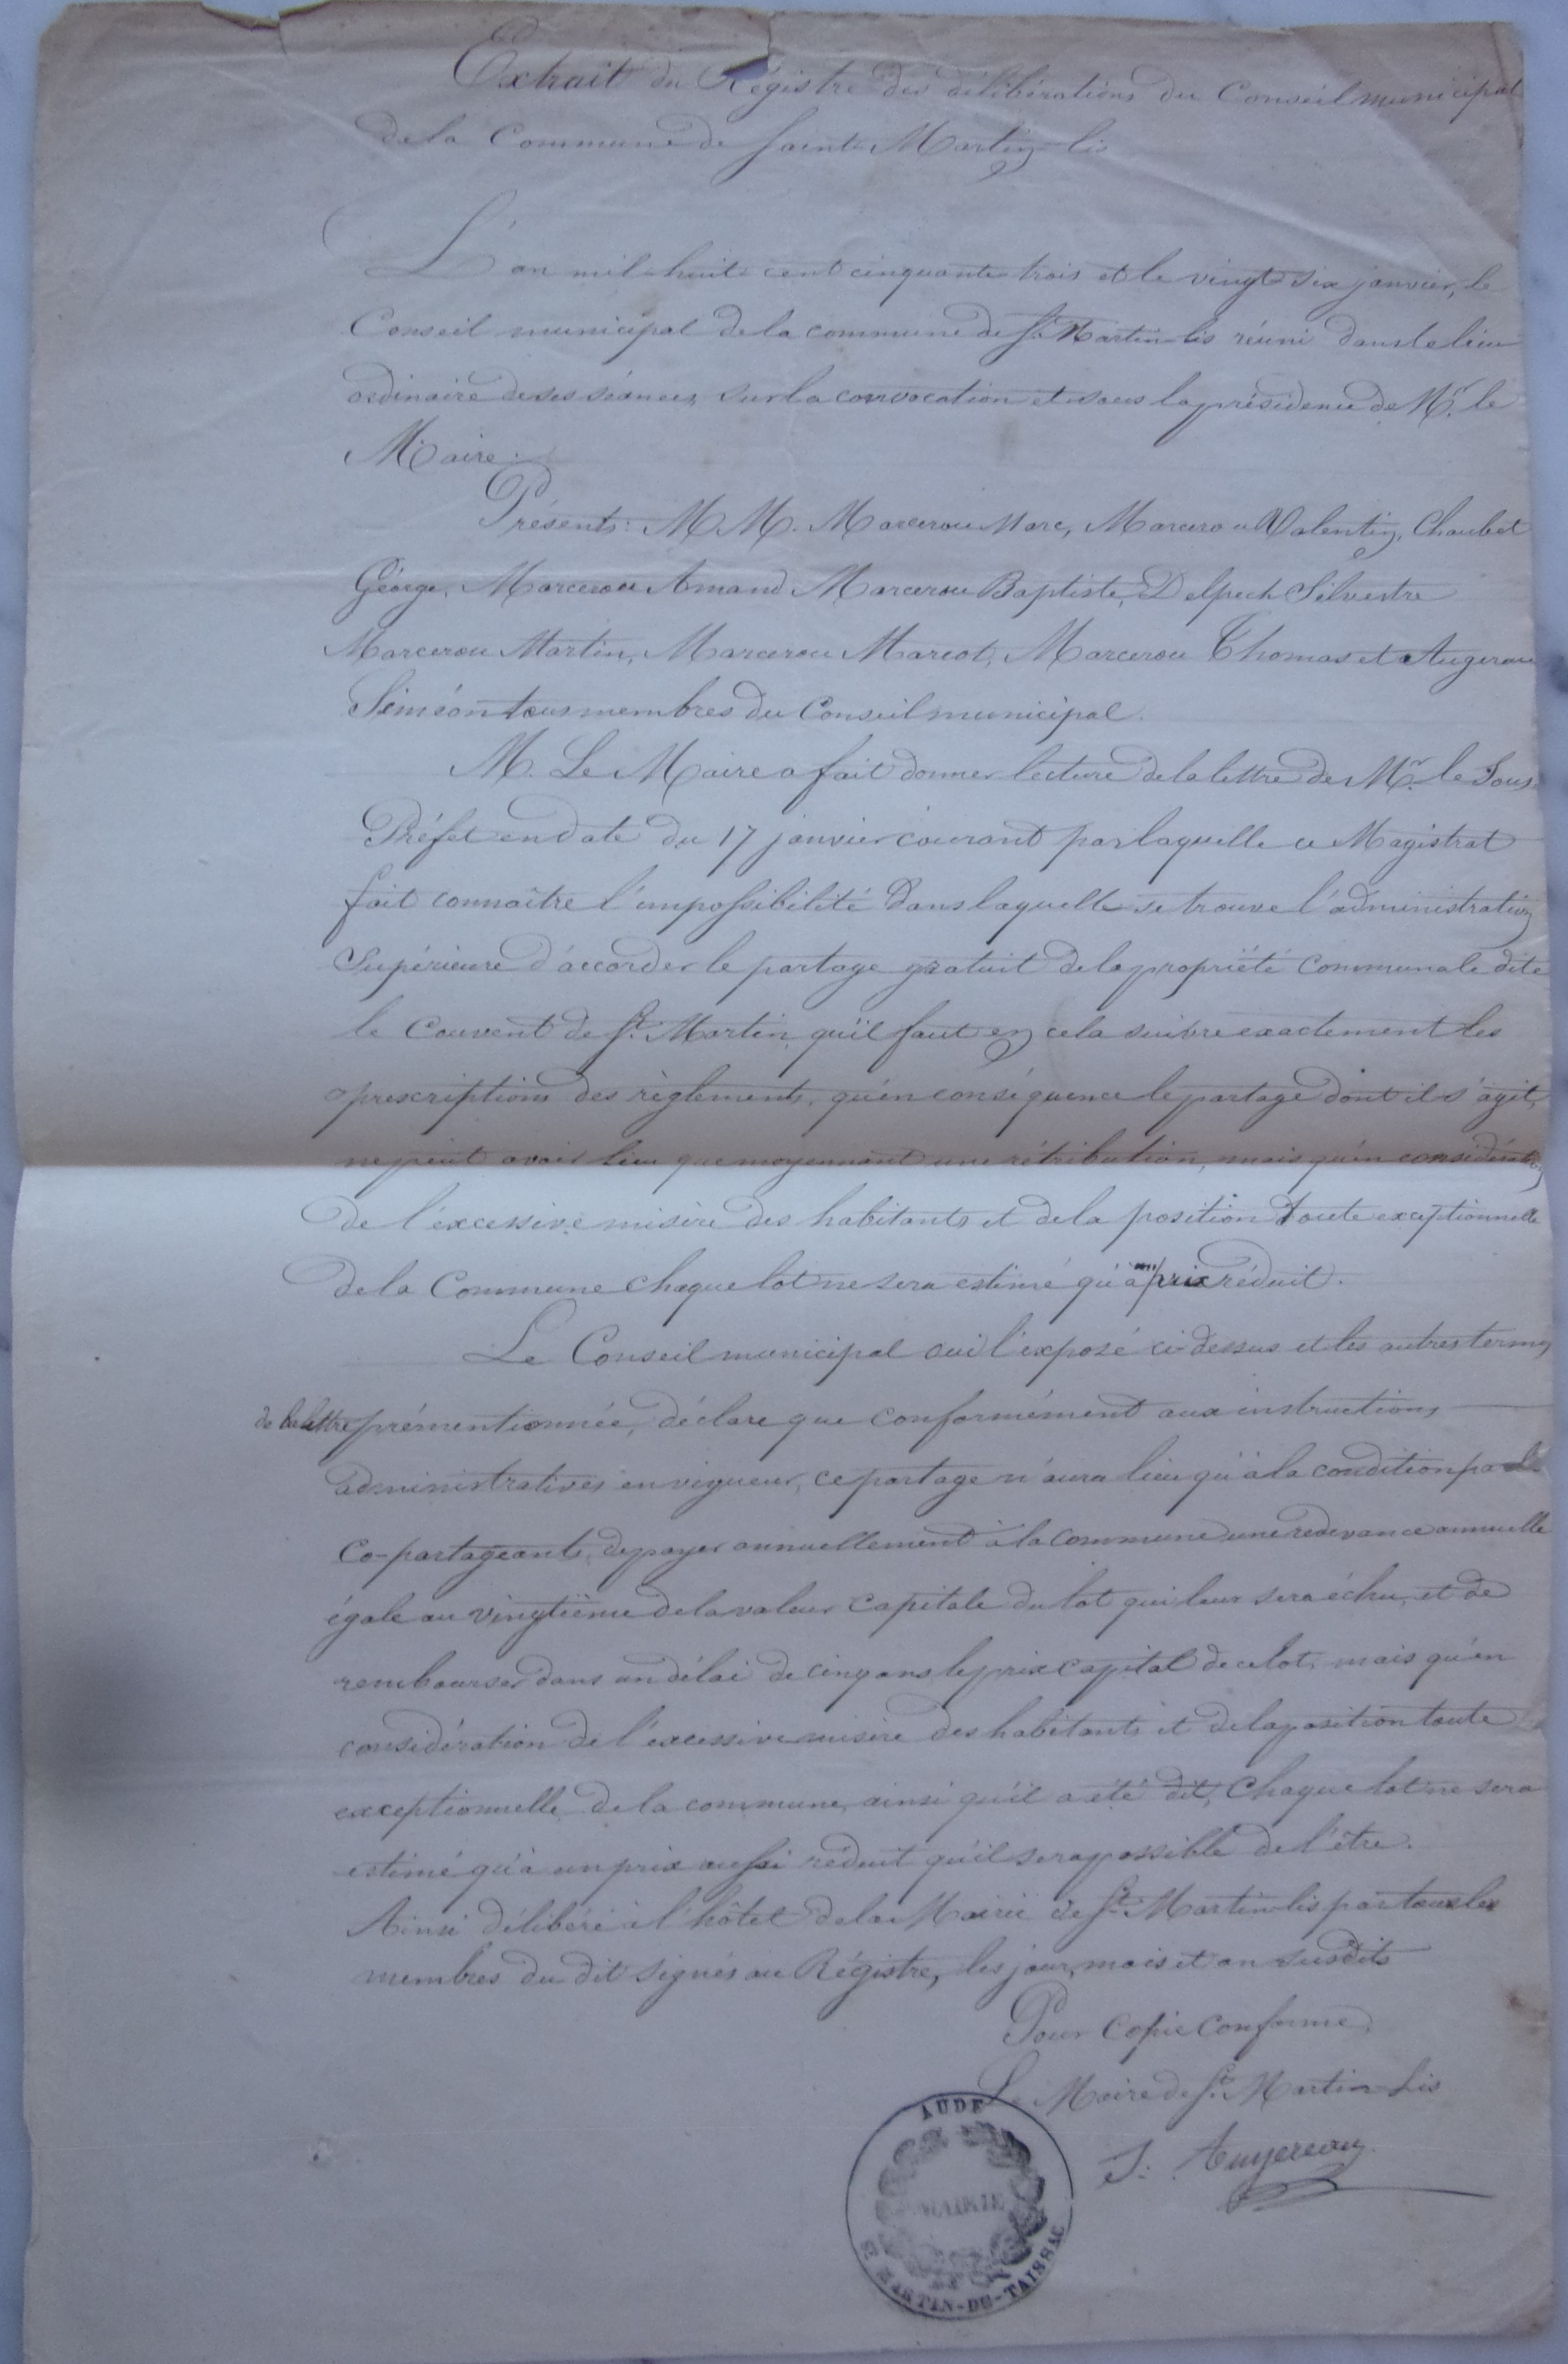 Extrait du Régistre des délibérations du Conseil municipal
de la Commune de Saint-Martin-lis
L'an mil-huit-cent cinquante-trois et le vingt-six janvier, le
Conseil municipal de la commune de St. Martin-lis réuni dans le lieu
ordinaire de ses séances, sur la convocation et sous la présidence de Mr. le
Maire.
Présents: M.M. Marcerou Marc, Marcerou Valentin, Chaubet
Géorge, Marcerou Amand, Marcerou Baptiste, Delpech Silvestre
Marcerou Martin, Marcerou Marcot, Marcerou Thomas et Augerau
Siméon tous membres du Conseil municipal.
M. Le Maire a fait donner lecture de la lettre de Mr. le Sous
Préfet en date du 17 janvier courant par laquelle ce Magistrat
fait connaître l'impossibilité dans laquelle se trouve l'administration
Supérieure d'accorder le partage gratuit de la propriété communale dite
le Couvent de St. Martin, qu'il faut en cela suivre exactement les
prescriptions des règlements, qu'en conséquence le partage dont il s'agit,
ne peut avoir lieu que moyennant une rétribution, mais qu'en considération
de l'excessive misère des habitants et de la position toute exceptionnelle
de la Commune chaque lot ne sera estimé qu'à un prix réduit.
Le Conseil municipal oui l'exposé ci-dessus et les autres termes
de la lettre prémentionnée, déclare que conformément aux instructions
administratives en vigueur, ce partage n'aura lieu qu'à la condition par les
Co-partageants, de payer annuellement à la commune une redevance annuelle
égale au vingtième de la valeur capitale du lot qui leur sera échu, et de
rembourser dans un délai de cinq ans le prix capital de ce lot, mais qu'en
considération de l'excessive misère des habitants et de la position toute
exceptionnelle de la commune, ainsi qu'il a été dit, Chaque lot ne sera
estimé qu'à un prix aussi réduit qu'il sera possible de l'être.
Ainsi délibéré à l'hôtel de la Mairie de St. Martin-lis par tous les
membres du dit signés au Régistre, les jour, mois et an susdits
Pour Copie conforme,
Le Maire de St. Martin-Lis
S. Augereau
AUDE
MAIRIE
ST MARTIN-DE-TAISSAC